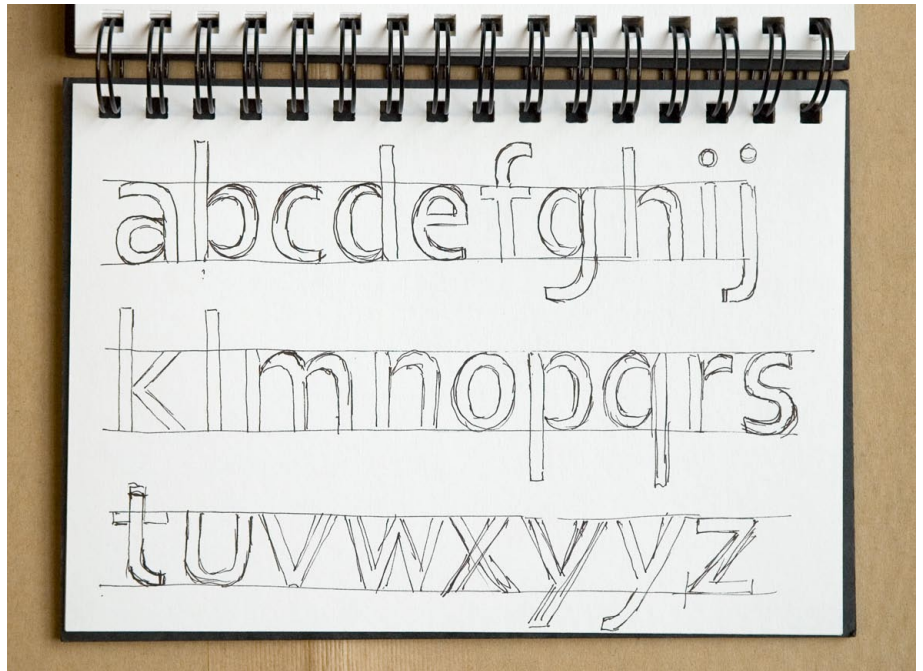 abcdefghij
klmnopqrs
tuvwxyyz